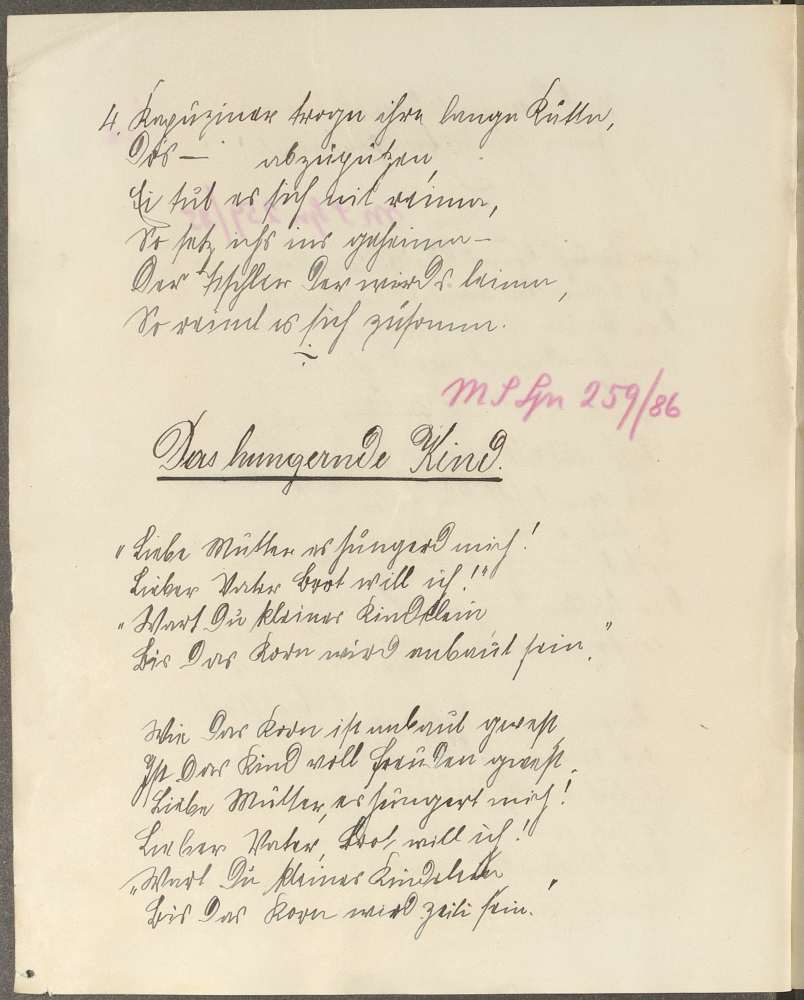 4. Kapuziner trogn ihre lange Kuttn,
Dos — abzuputzen,
Ei tut es sich nit reima,
So setz ichs ins geheima —
Der Tischler der wirds leima,
So reimt es sich zusomm.
Das hungernde Kind.
"Liebe Mutter es hungerd mich!
Lieber Vater Brot will ich!"
"Wart Du kleines Kindelein
Bis Das Korn wird anbaut sein."
Wie Das Korn ist anbaut gwest,
Ist Das Kind voll Freuden gwest.
"Liebe Mutter, es hungert mich!
Lieber Vater, Brot will ich!
"Wart Du kleines Kindelein
Bis Das Korn wird zeiti sein."
259/86